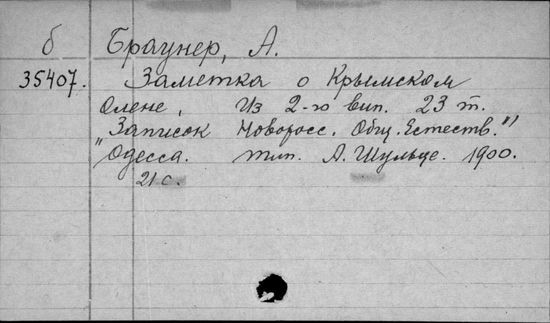 б Браунер, А.
35407. Заметка о Крымском
олене, Из 2-го вып. 23 т.
"Записок Новоросс. Общ. Естеств."
Одесса. тип. А. Шульце. 1900.
21 с.